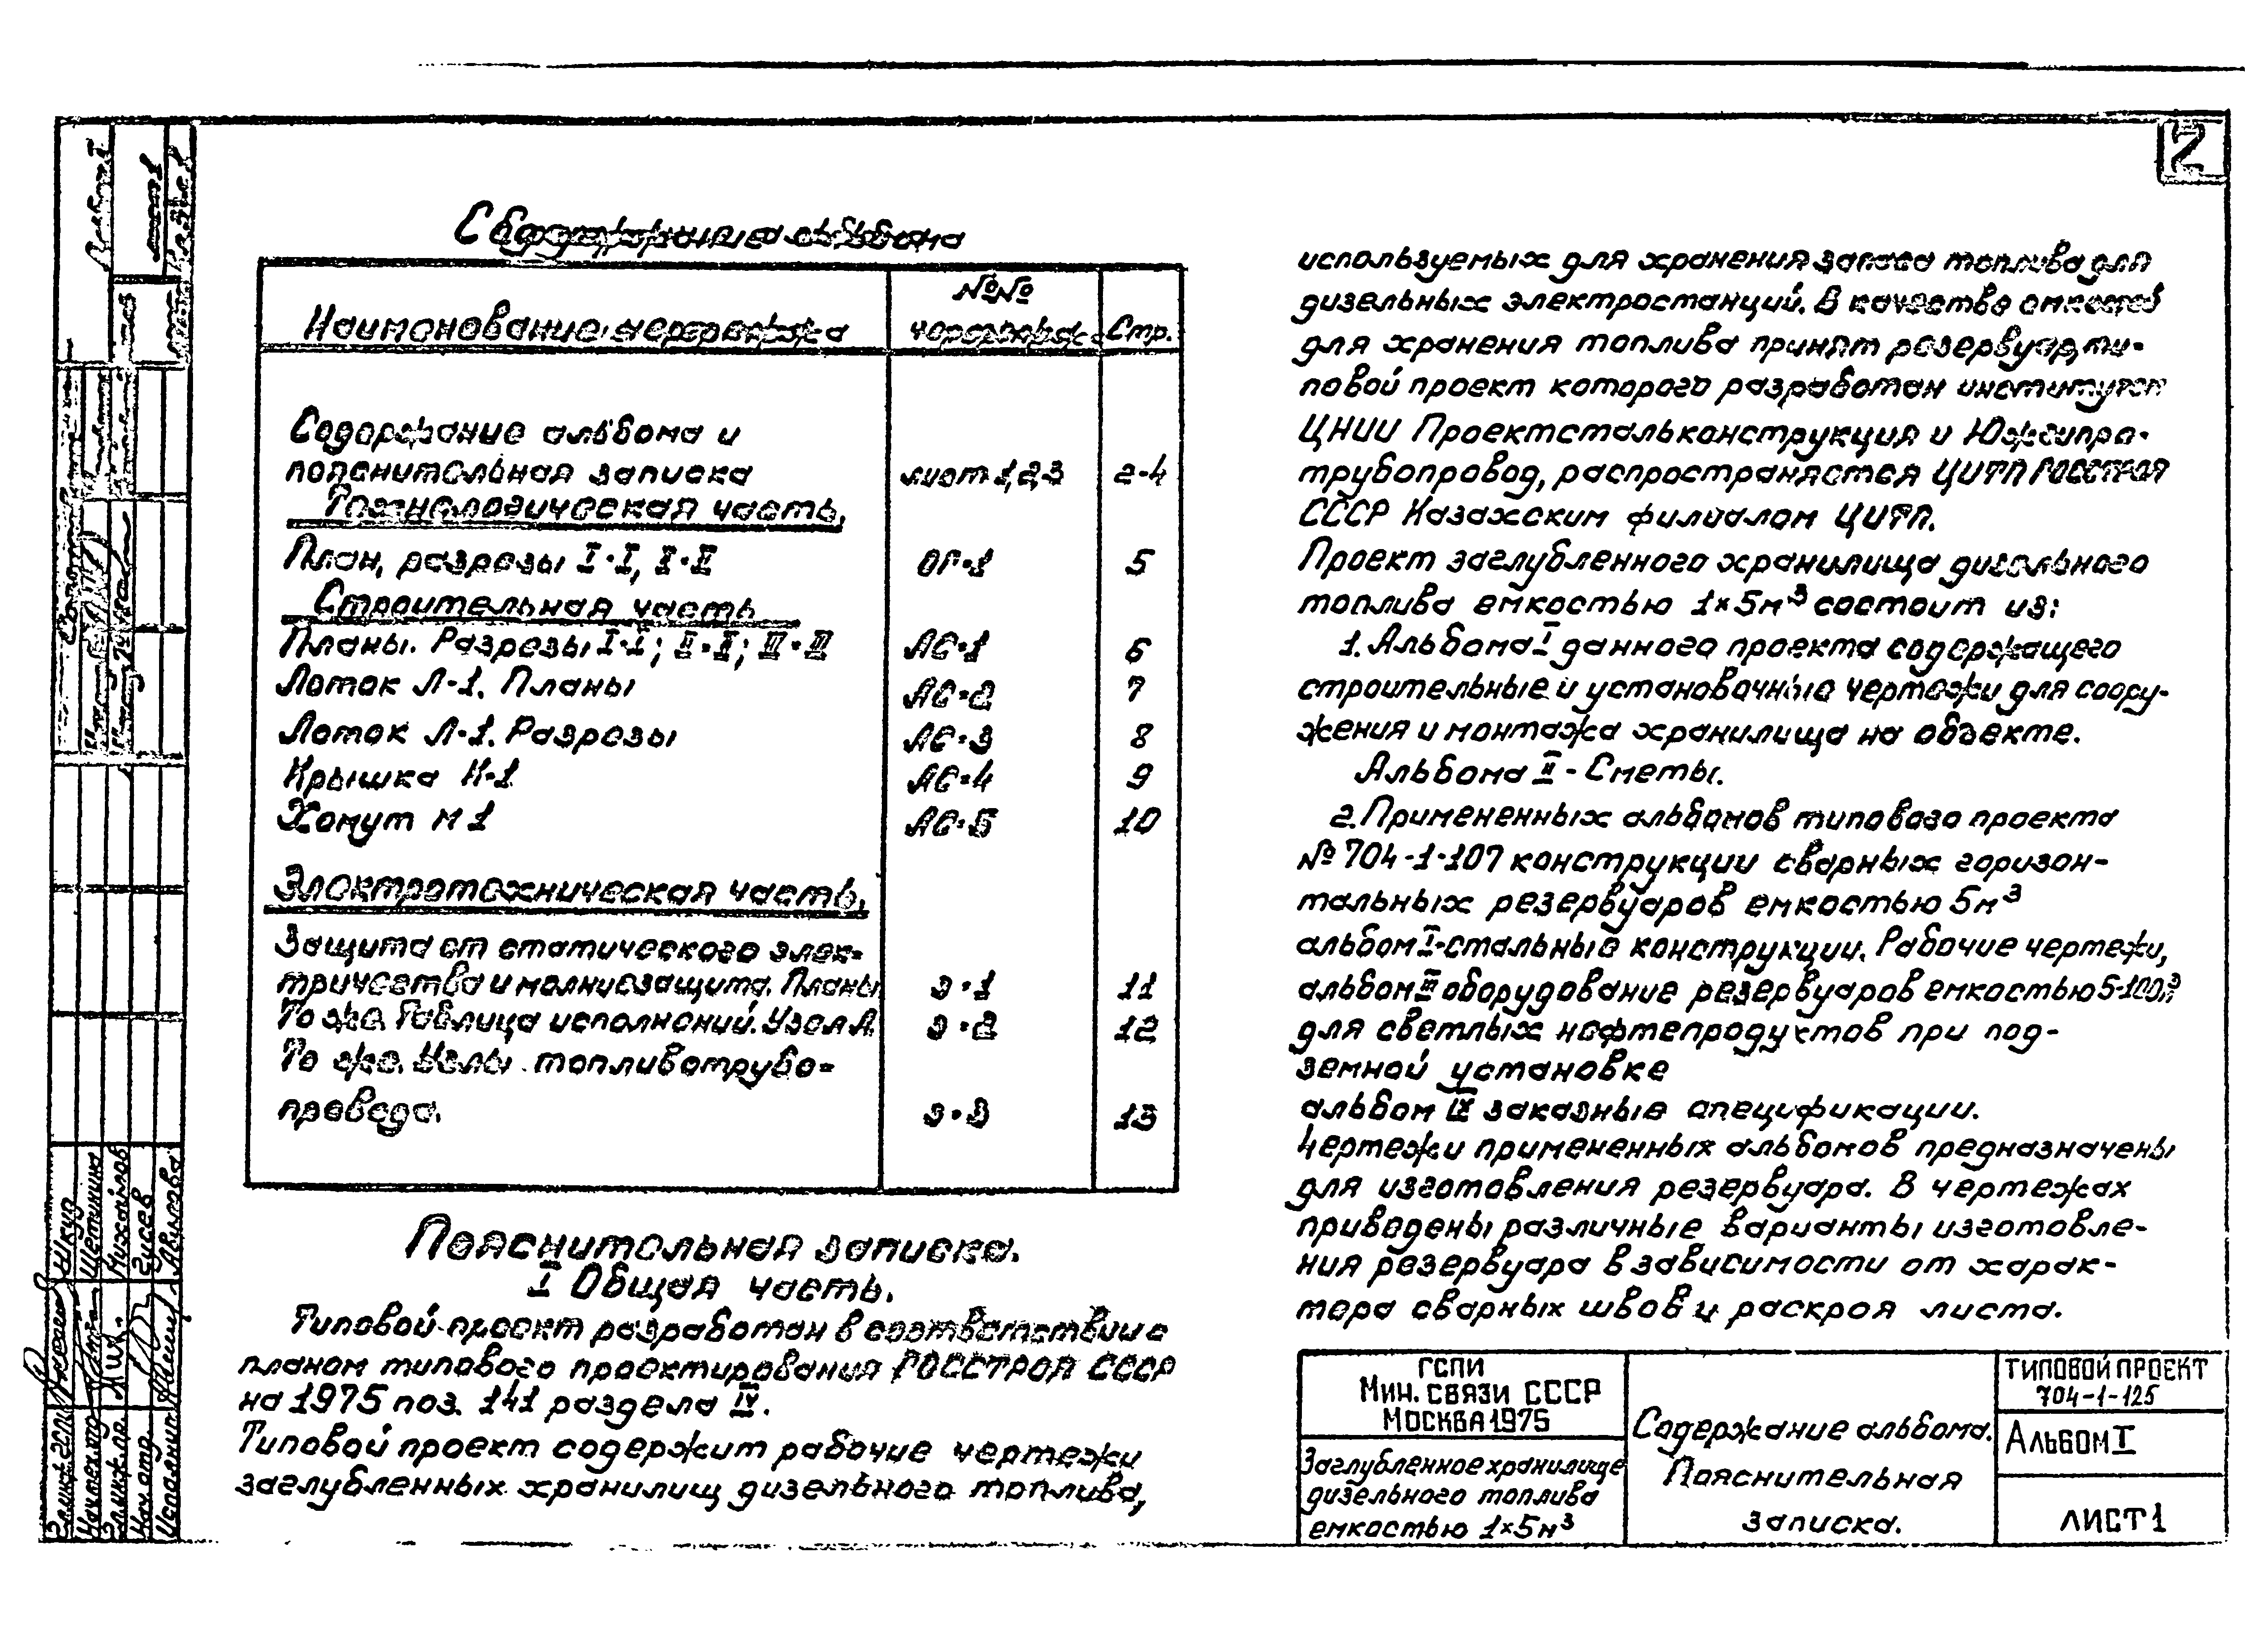 2
Содержание альбома
Наименование чертежа
№№
чертежа
Стр.
Содержание альбома и
пояснительная записка
лист 1,2,3
2-4
Технологическая часть.
План, разрезы I-I, II-II
ОГ-1
5
Строительная часть
Планы. Разрезы I-I; II-II; III-III
АС-1
6
Лоток Л-1. Планы
АС-2
7
Лоток Л-1. Разрезы
АС-3
8
Крышка К-1
АС-4
9
Хомут М 1
АС-5
10
Электротехническая часть.
Защита от статического элек-
тричества и молниезащита. Планы
Э-1
11
То же. Таблица исполнений. Узел А.
Э-2
12
То же. Узлы топливотрубо-
провода.
Э-3
13
Пояснительная записка.
I Общая часть.
Типовой проект разработан в соответствии с
планом типового проектирования ГОССТРОЯ СССР
на 1975 поз. 141 раздела IV.
Типовой проект содержит рабочие чертежи
заглубленных хранилищ дизельного топлива,
используемых для хранения запаса топлива для
дизельных электростанций. В качестве емкостей
для хранения топлива принят резервуар, ти-
повой проект которого разработан институтом
ЦНИИ Проектстальконструкция и Южгипро-
трубопровод, распространяется ЦИТП ГОССТРОЯ
СССР Казахским филиалом ЦИТП.
Проект заглубленного хранилища дизельного
топлива емкостью 1×5м³ состоит из:
1. Альбома I данного проекта содержащего
строительные и установочные чертежи для соору-
жения и монтажа хранилища на объекте.
Альбома II - Сметы.
2. Примененных альбомов типового проекта
№ 704-1-107 конструкции сварных горизон-
тальных резервуаров емкостью 5м³
альбом I-стальные конструкции. Рабочие чертежи,
альбом III оборудование резервуаров емкостью 5-100м³
для светлых нефтепродуктов при под-
земной установке
альбом IV заказные спецификации.
Чертежи примененных альбомов предназначены
для изготовления резервуара. В чертежах
приведены различные варианты изготовле-
ния резервуара в зависимости от харак-
тера сварных швов и раскроя листа.
ГСПИ
Мин. связи СССР
Москва 1975
Заглубленное хранилище
дизельного топлива
емкостью 1×5м³
Содержание альбома.
Пояснительная
записка.
ТИПОВОЙ ПРОЕКТ
704-1-125
Альбом I
ЛИСТ 1
Гл.инж.ГСПИ
Шкуд
Нач.тех.отд
Щетинина
Гл.инж.пр.
Михайлов
Нач. отд.
Гусев
Исполнил
Авилова